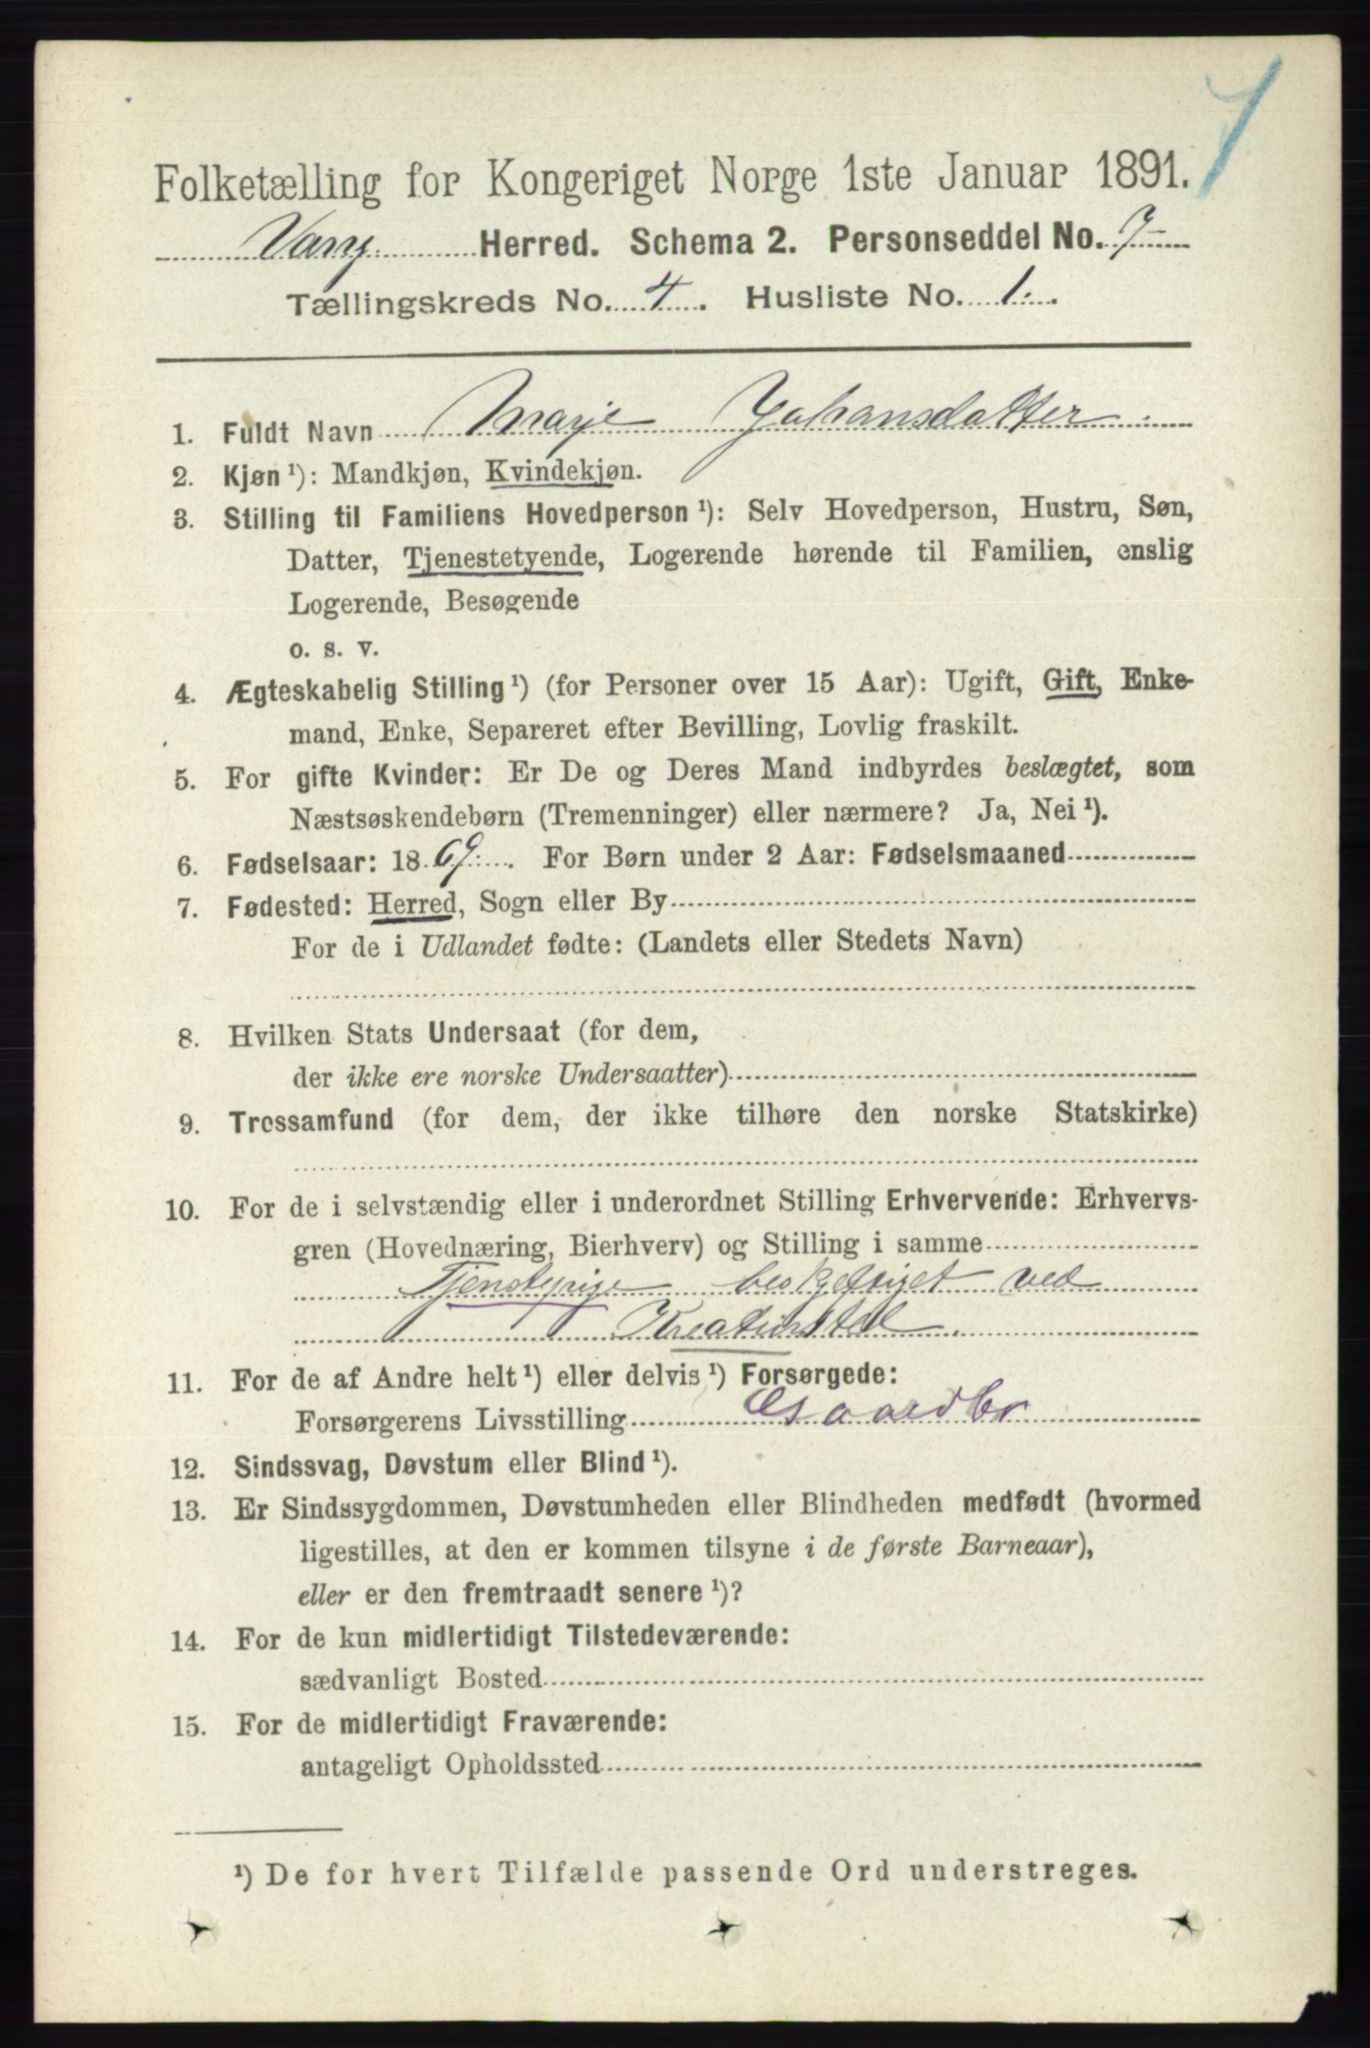 7
Folketælling for Kongeriget Norge 1ste Januar 1891.
Vang Herred. Schema 2. Personseddel No. 7
Tællingskreds No. 4. Husliste No. 1.
1. Fuldt Navn Marje Johansdatter
2. Kjøn ¹): Mandkjøn, Kvindekjøn.
3. Stilling til Familiens Hovedperson ¹): Selv Hovedperson, Hustru, Søn,
Datter, Tjenestetyende, Logerende hørende til Familien, enslig
Logerende, Besøgende
o. s. v.
4. Ægteskabelig Stilling ¹) (for Personer over 15 Aar): Ugift, Gift, Enke-
mand, Enke, Separeret efter Bevilling, Lovlig fraskilt.
5. For gifte Kvinder: Er De og Deres Mand indbyrdes beslægtet, som
Næstsøskendebørn (Tremenninger) eller nærmere? Ja, Nei ¹).
6. Fødselsaar: 1869. For Børn under 2 Aar: Fødselsmaaned
7. Fødested: Herred, Sogn eller By
For de i Udlandet fødte: (Landets eller Stedets Navn)
8. Hvilken Stats Undersaat (for dem,
der ikke ere norske Undersaatter)
9. Trossamfund (for dem, der ikke tilhøre den norske Statskirke)
10. For de i selvstændig eller i underordnet Stilling Erhvervende: Erhvervs-
gren (Hovednæring, Bierhverv) og Stilling i samme
Tjenstepige beskjeftiget ved
Kreaturstel
11. For de af Andre helt ¹) eller delvis ¹) Forsørgede:
Forsørgerens Livsstilling Gaardbr
12. Sindssvag, Døvstum eller Blind ¹).
13. Er Sindssygdommen, Døvstumheden eller Blindheden medfødt (hvormed
ligestilles, at den er kommen tilsyne i de første Barneaar),
eller er den fremtraadt senere ¹)?
14. For de kun midlertidigt Tilstedeværende:
sædvanligt Bosted
15. For de midlertidigt Fraværende:
antageligt Opholdssted
¹) De for hvert Tilfælde passende Ord understreges.